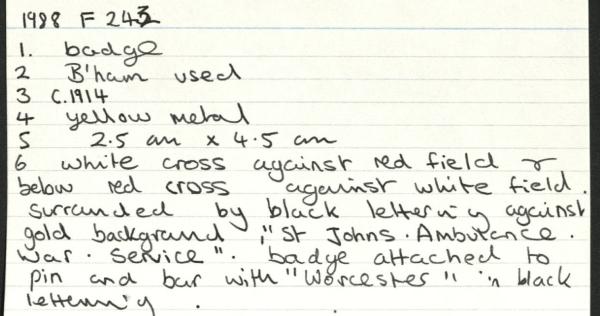 1988 F 243
1. badge
2 B'ham used
3 C.1914
4 yellow metal
5 2.5 cm x 4.5 cm
6 white cross against red field &
below red cross against white field.
surrounded by black lettering against
gold background, "St Johns. Ambulance.
War. Service". badge attached to
pin and bar with "Worcester" in black
lettering.